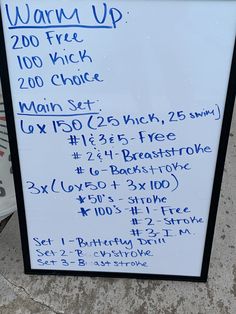 Warm Up:
200 Free
100 Kick
200 Choice
Main Set:
6x150 (25 Kick, 25 swim)
#1&3&5-Free
#2&4-Breaststroke
#6-Backstroke
3x(6x50 + 3x100)
*50's - Stroke
*100's - #1- Free
#2- Stroke
#3- I.M.
Set 1 - Butterfly Drill
Set 2 - B ckstroke
Set 3 - B ast stroke